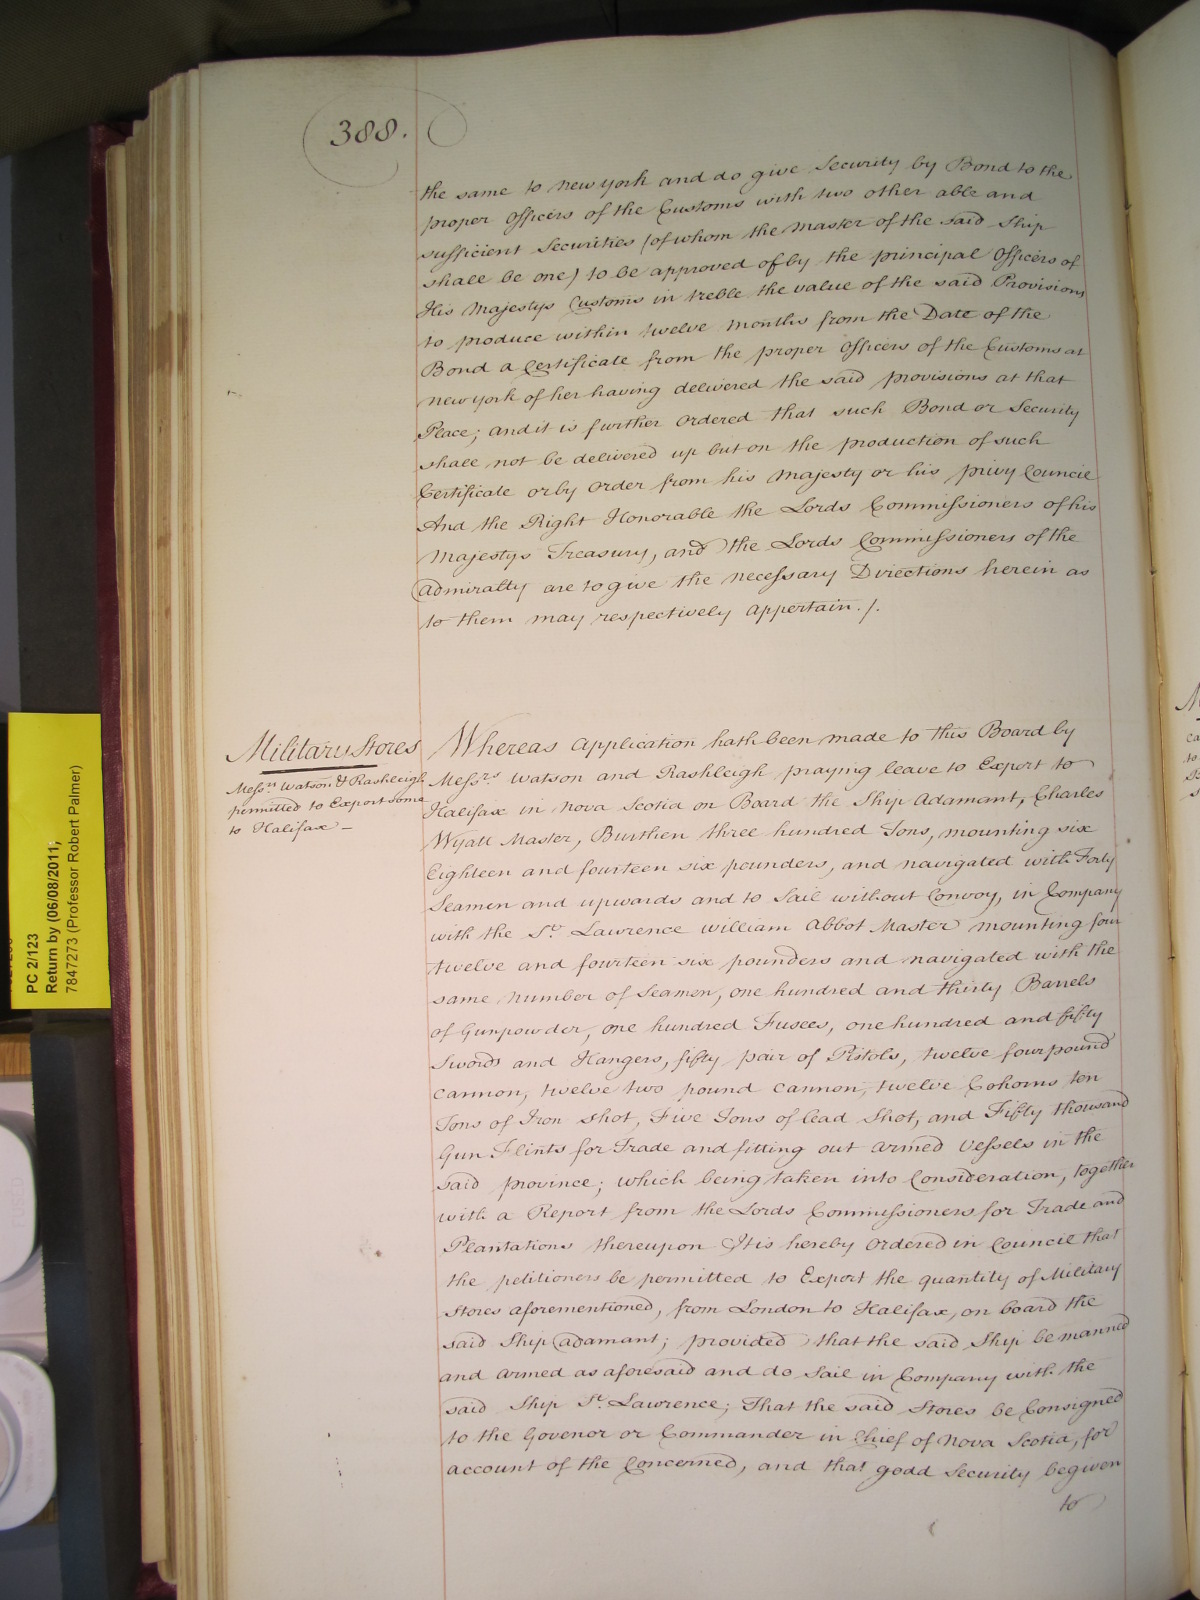 388.
the same to New york and do give Security by Bond to the
proper Officers of the Customs with two other able and
sufficient Securities (of whom the Master of the said Ship
shall be one) to be approved of by the principal Officers of
His Majestys Customs in treble the value of the said Provisions
to produce within twelve Months from the Date of the
Bond a Certificate from the proper Officers of the Customs at
New york of her having delivered the said provisions at that
Place; and it is further Ordered that such Bond or Security
shall not be delivered up but on the production of such
Certificate or by Order from his Majesty or his privy Council
And the Right Honorable the Lords Commissioners of his
Majestys Treasury, and the Lords Commissioners of the
Admiralty are to give the necessary Directions herein as
to them may respectively appertain./.
Military Stores
Messrs. Watson & Rashleigh
permitted to Export some
to Halifax —
Whereas Application hath been made to this Board by
Messrs. Watson and Rashleigh praying leave to Export to
Halifax in Nova Scotia on Board the Ship Adamant, Charles
Wyatt Master, Burthen three hundred Tons, mounting six
Eighteen and fourteen six pounders, and navigated with Forty
Seamen and upwards and to Sail without Convoy, in Company
with the St. Lawrence William Abbot Master mounting four
twelve and fourteen six pounders and navigated with the
same number of Seamen, one hundred and thirty Barrels
of Gunpowder, one hundred Fusees, one hundred and fifty
Swords and Hangers, fifty pair of Pistols, twelve four pound
cannon, twelve two pound cannon, twelve Cohorns ten
Tons of Iron Shot, Five Tons of lead Shot, and Fifty thousand
Gun Flints for Trade and fitting out armed Vessels in the
said province; which being taken into Consideration, together
with a Report from the Lords Commissioners for Trade and
Plantations thereupon It is hereby Ordered in Council that
the petitioners be permitted to Export the quantity of Military
Stores aforementioned, from London to Halifax, on board the
said Ship Adamant; provided that the said Ship be manned
and armed as aforesaid and do Sail in Company with the
said Ship St. Lawrence; That the said Stores be Consigned
to the Govenor or Commander in Chief of Nova Scotia, for
account of the Concerned, and that good Security be given
to
PC 2/123
Return by (06/08/2011;
7847273 (Professor Robert Palmer)